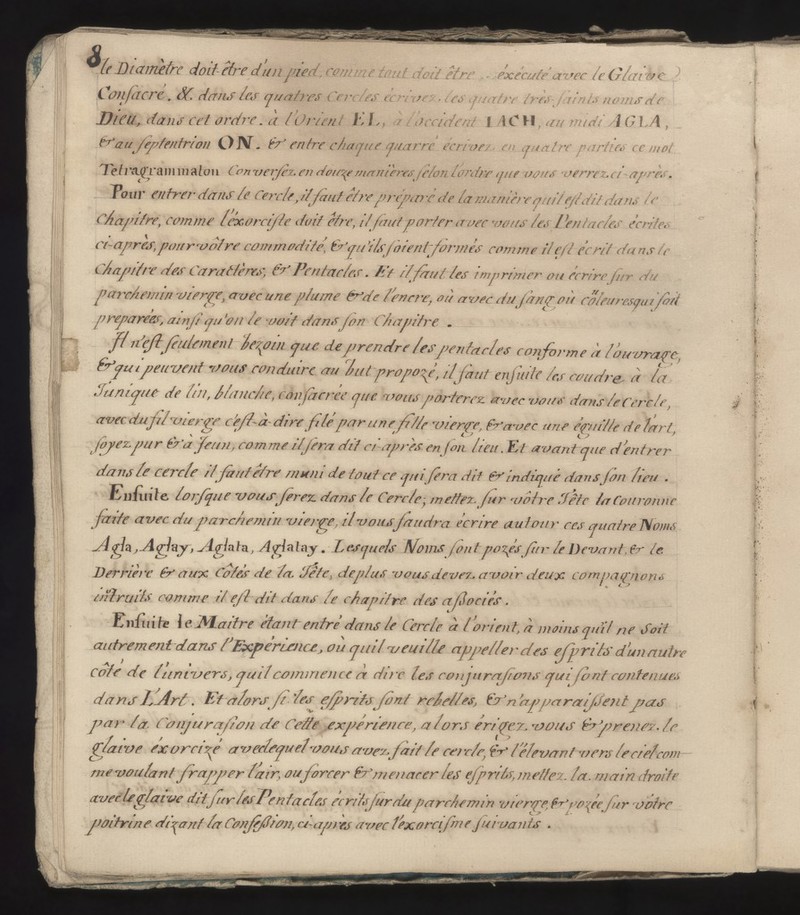 8
le Diamètre doit être d'un pied, comme tout doit être exécuté avec le Glaive
Consacré. &. dans les quatres Cercles écrivez les quatre très saints noms de
Dieu, dans cet ordre. à l'Orient EL, à l'occident IACH, au midi AGLA,
& au septentrion ON. & entre chaque quarré écrivez en quatre parties ce mot
Tetragrammaton Conversez. en douze manières selon l'ordre que vous verrez. ci-après.
Pour entrer dans le Cercle, il faut être préparé de la manière qu'il est dit dans le
Chapitre, comme l'éxorciste doit être, il faut porter avec vous les Pentacles écrites
ci-après, pour vôtre commodité, & qu'ils soient formés comme il est écrit dans le
Chapitre des Caractères, & Pentacles. Et il faut les imprimer ou écrire sur du
parchemin vierge, avec une plume & de l'encre, où avec du sang où côleures qui soit
préparées, ainsi qu'on le voit dans son Chapitre.
Il n'est seulement bezoin que de prendre les pentacles conforme à l'ouvrage,
& qui peuvent vous conduire au but propozé, il faut ensuite les coudre à la
Tunique de lin, blanche, consacrée que vous porterez avec vous dans le Cercle,
avec du fil vierge c'est-à-dire filé par une fille vierge, & avec une éguille de l'art,
soyez pur & à Jeun, comme il sera dit ci-après en son lieu. Et avant que d'entrer
dans le cercle il faut être muni de tout ce qui sera dit & indiqué dans son lieu.
Ensuite lorsque vous serez dans le Cercle; mettez sur vôtre Tête la Couronne
faite avec du parchemin vierge, il vous faudra écrire autour ces quatre Noms
Agla, Aglay, Aglata, Aglatay. Lesquels Noms sont pozés sur le Devant, & le
Derrière & aux Côtés de la Tête, deplus vous devez avoir deux compagnons
intruits comme il est dit dans le chapitre des aßociés.
Ensuite le Maitre étant entré dans le Cercle à l'orient, à moins qu'il ne Soit
autrement dans l'Expérience, où quil veuille appeller des esprits d'un autre
côté de l'univers, quil commence à dire les conjurasions qui sont contenues
dans L'Art. Et alors si les esprits sont rebelles, & n'apparaißent pas
par la Conjurasion de Cette expérience, alors érigez vous & prenez le
glaive éxorcizé avec lequel vous avez fait le cercle, & l'élevant vers le ciel com-
me voulant frapper l'air, ou forcer & menacer les esprits, mettez la main droite
avec le glaive dit sur les Pentacles écrits sur du parchemin vierge & pozée sur vôtre
poitrine dizant la Confeßion, ci-après avec l'éxorcisme suivants.